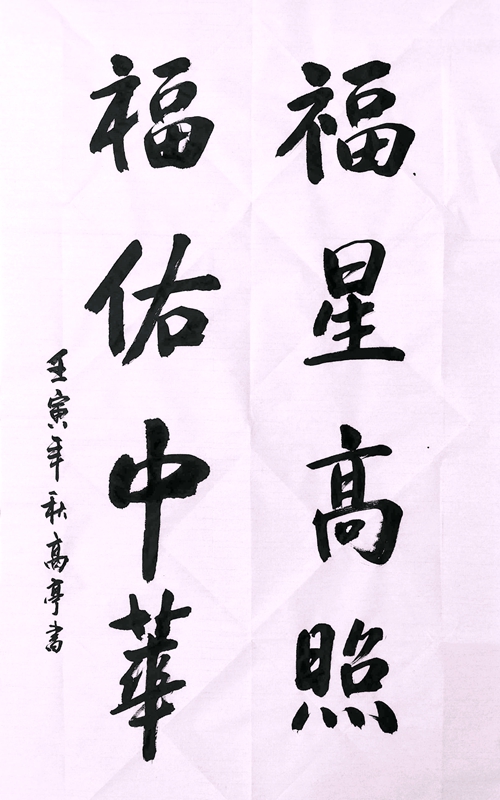 福星高照
福佑中華
壬寅年秋高亭書